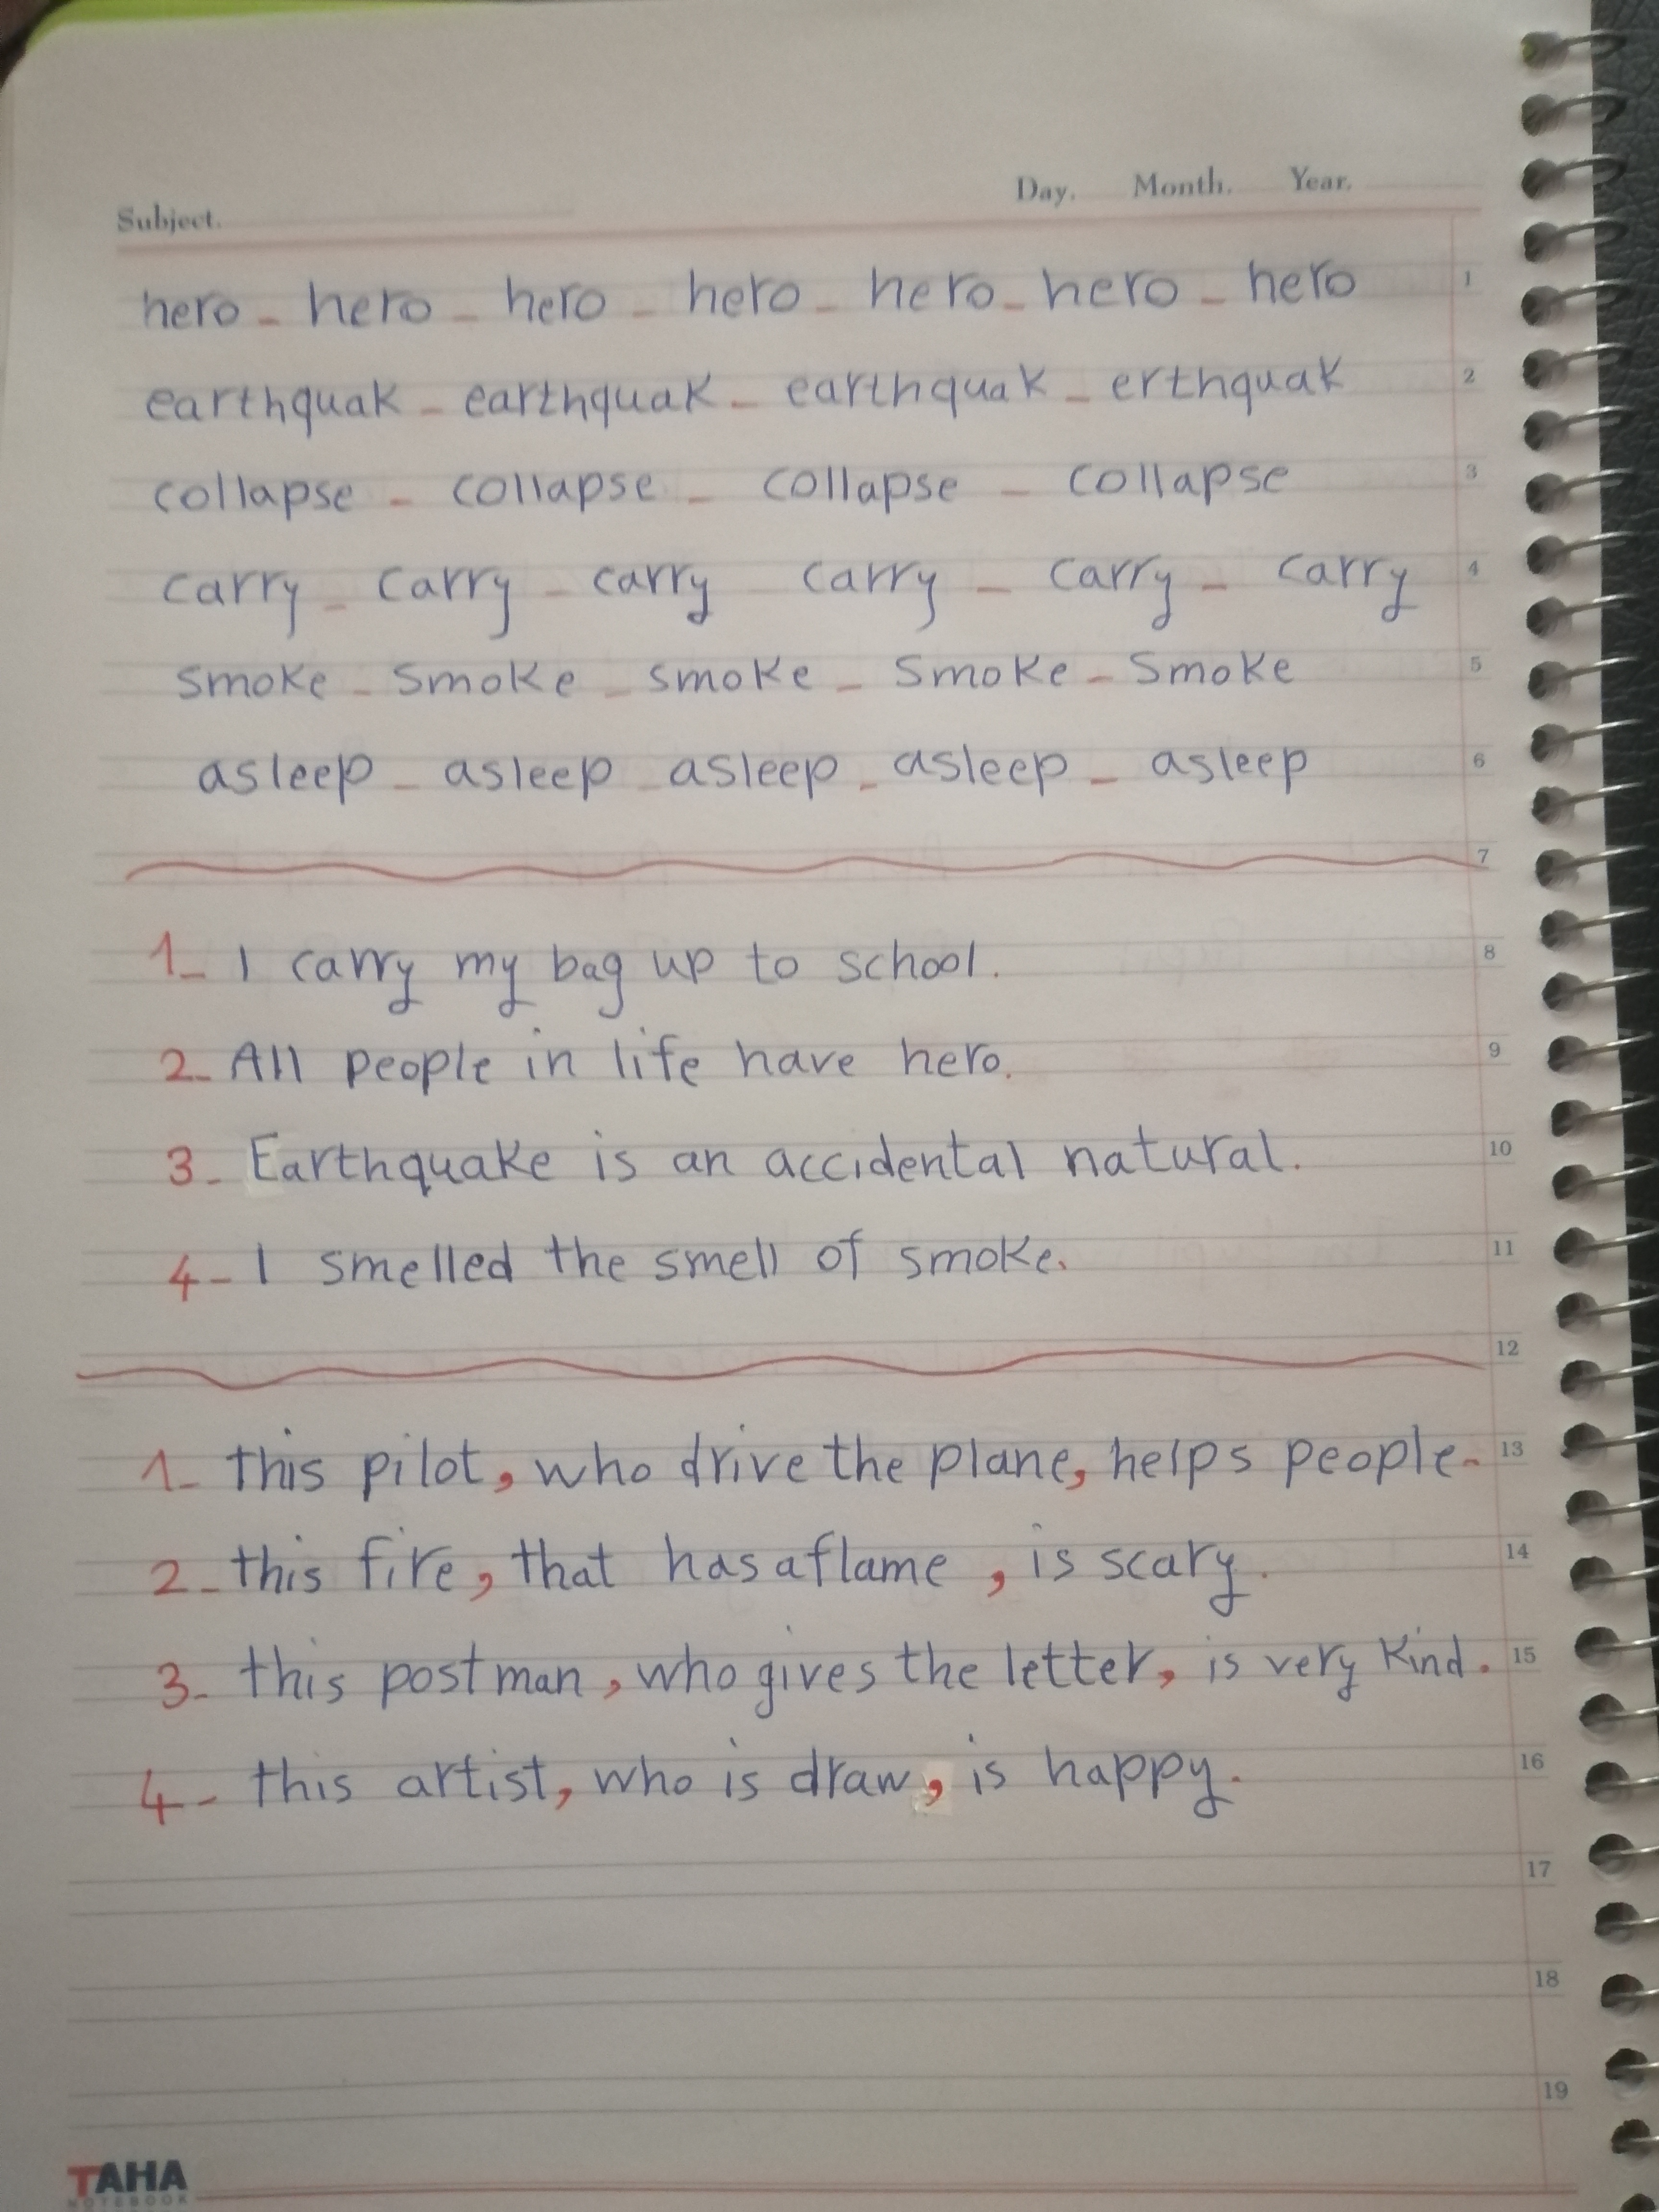 Day. Month. Year.
Subject.
hero - hero - hero - hero - hero - hero - hero 1
earthquak - earthquak - earthquak - erthquak 2
collapse - collapse - collapse - collapse 3
carry - carry - carry carry - carry - carry 4
smoke - smoke - smoke - smoke - smoke 5
asleep - asleep - asleep - asleep - asleep 6
7
1- I carry my bag up to school. 8
2- All people in life have hero. 9
3- Earthquake is an accidental natural. 10
4- I smelled the smell of smoke. 11
12
1- this pilot, who drive the plane, helps people. 13
2- this fire, that has a flame, is scary. 14
3- this postman, who gives the letter, is very kind. 15
4- this artist, who is draw, is happy. 16
17
18
19
TAHA
NOTEBOOK